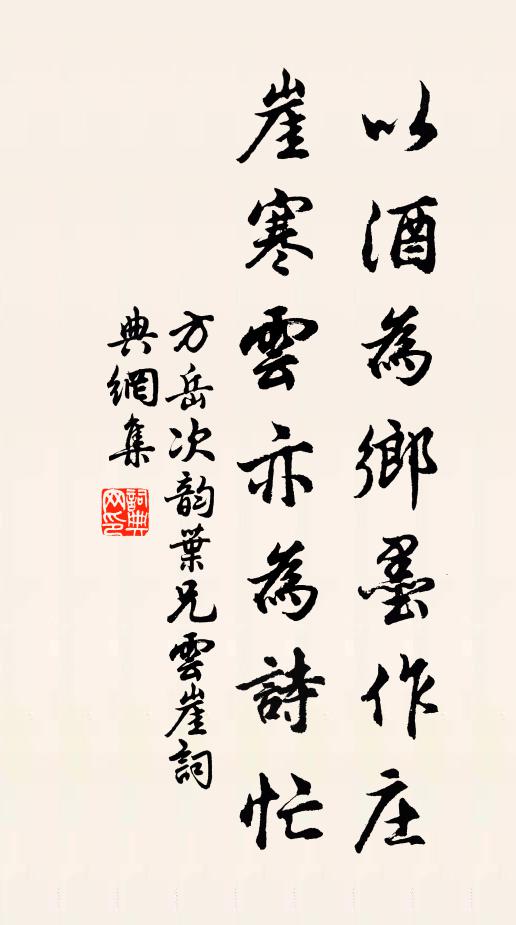 以酒為鄉墨作庄
崖寒雲亦為詩忙
方岳次韵葉兄雲崖詞
典網集
詞典网印